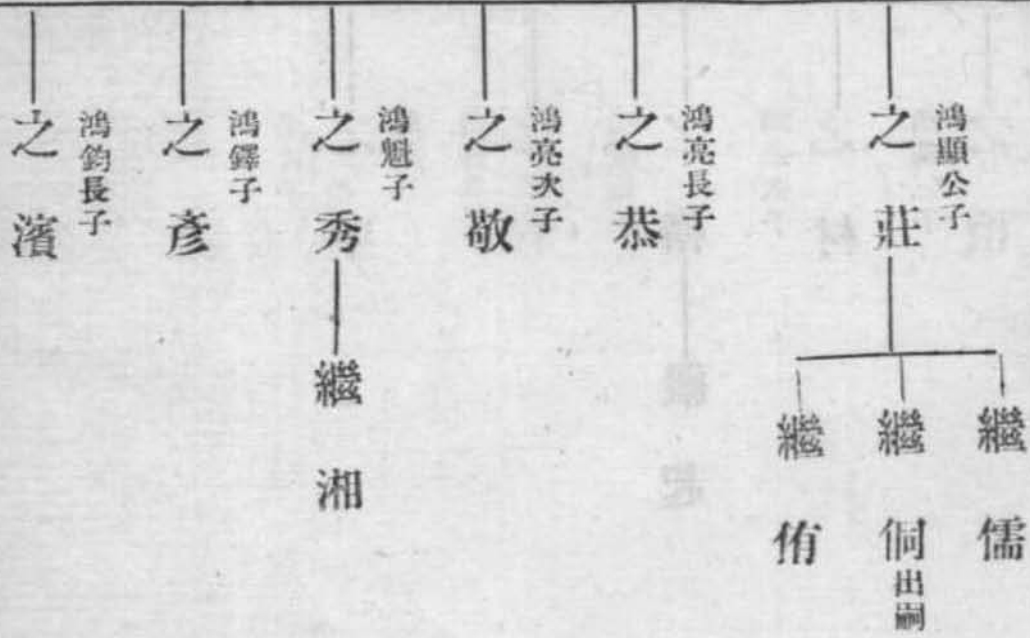 鴻顯公子
之莊
繼儒
繼侗出嗣
繼侑
鴻亮長子
之恭
鴻亮次子
之敬
鴻魁子
之秀
繼湘
鴻鐸子
之彥
鴻鈞長子
之濱